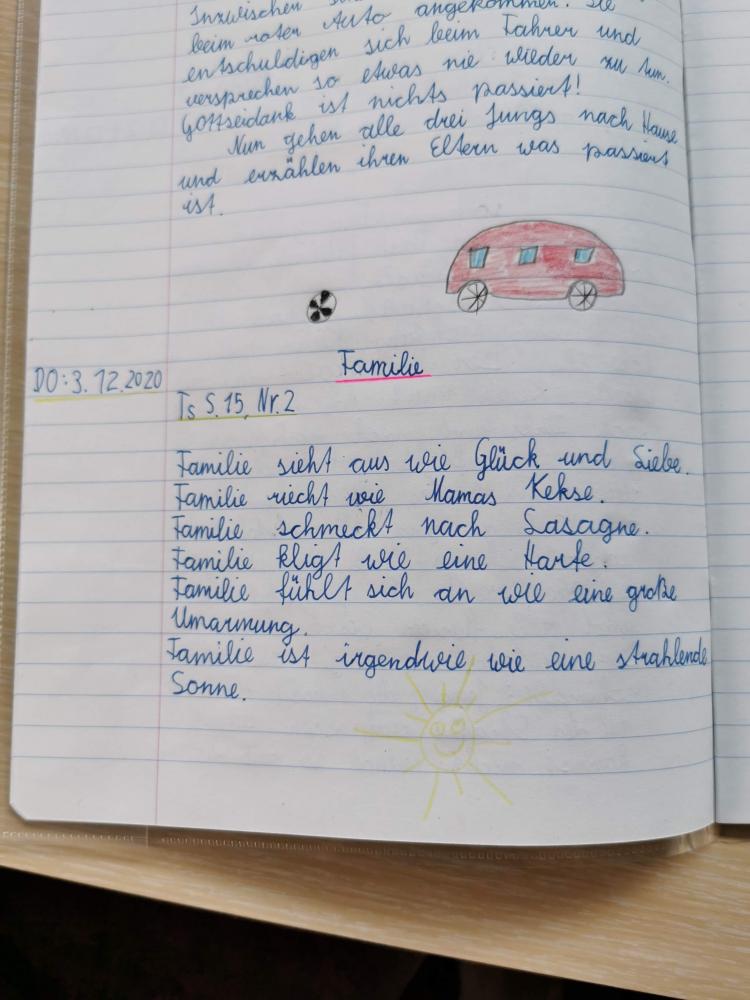 Inzwischen
beim roten Auto angekommen. Sie
entschuldigen sich beim Fahrer und
versprechen so etwas nie wieder zu tun.
Gottseidank ist nichts passiert!
Nun gehen alle drei Jungs nach Hause
und erzählen ihren Eltern was passiert
ist.
Familie
DO: 3.12.2020
Ts S. 15, Nr. 2
Familie sieht aus wie Glück und Liebe.
Familie riecht wie Mamas Kekse.
Familie schmeckt nach Lasagne.
Familie kligt wie eine Harfe.
Familie fühlt sich an wie eine große
Umarmung.
Familie ist irgendwie wie eine strahlende
Sonne.